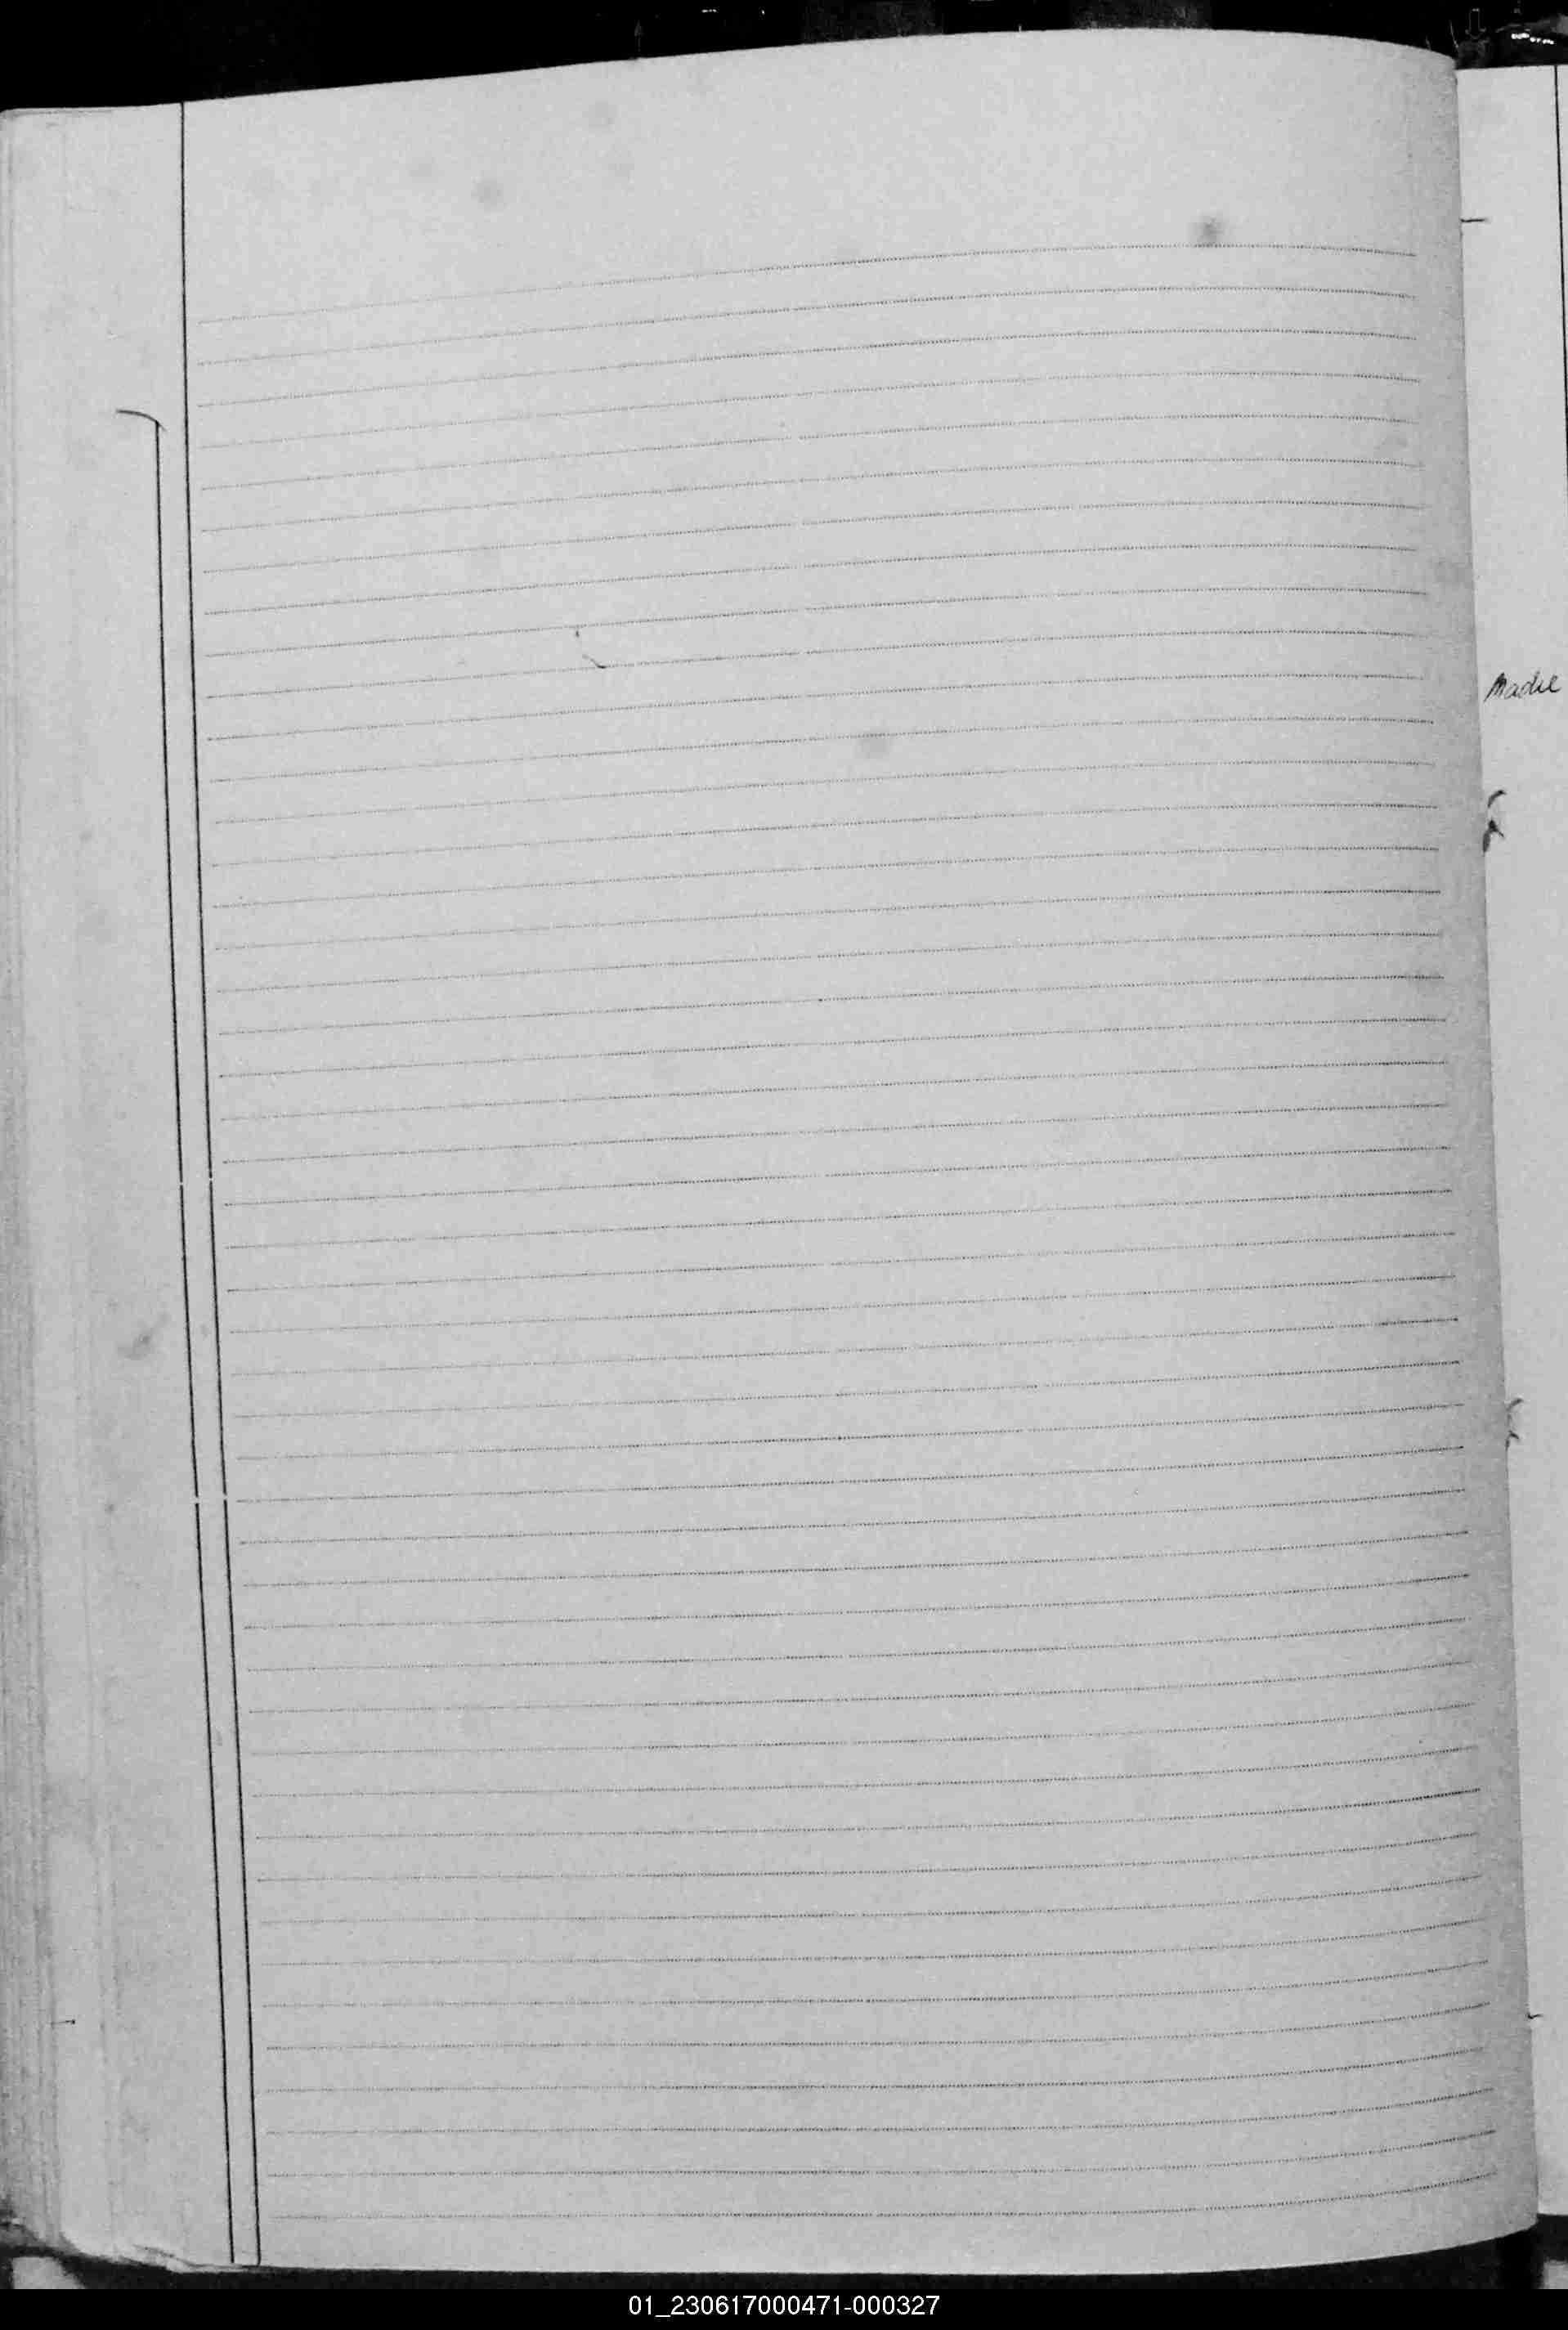 Madre
01_230617000471-000327